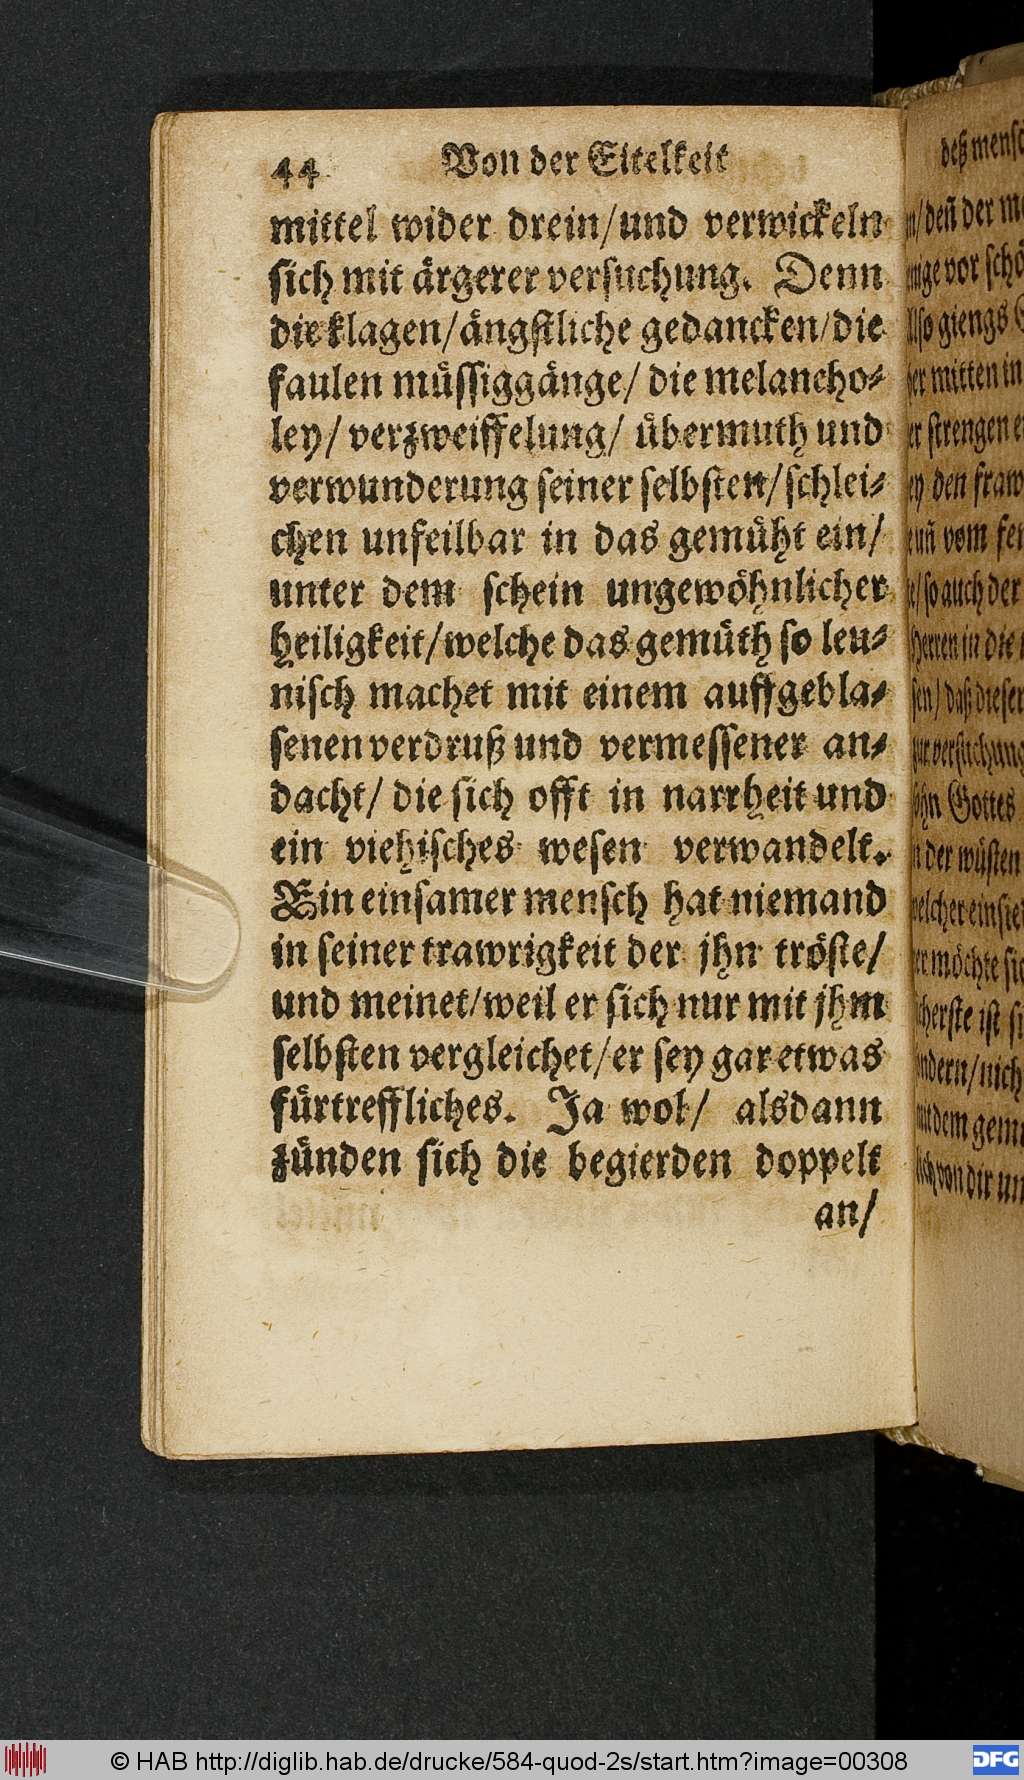 44 Von der Eitelkeit
mittel wider drein/und verwickeln
sich mit ärgerer versuchung. Denn
die klagen/ängstliche gedancken/die
faulen müssiggänge/ die melancho⸗
ley/ verzweiffelung/ übermuth und
verwunderung seiner selbsten/schlei⸗
chen unfeilbar in das gemüht ein/
unter dem schein ungewöhnlicher
heiligkeit/welche das gemüth so leu⸗
nisch machet mit einem auffgebla⸗
senen verdruß und vermessener an⸗
dacht/ die sich offt in narrheit und
ein viehisches wesen verwandelt.
Ein einsamer mensch hat niemand
in seiner trawrigkeit der jhn tröste/
und meinet/weil er sich nur mit jhm
selbsten vergleichet/er sey gar etwas
fürtreffliches. Ja wol/ alsdann
zünden sich die begierden doppelt
an/
deß
/deñ der
vor
giengs
mitten in
strengen
den
vom
/so auch der
Herren in die
/daß dieser
versuchung
Gottes
der wüsten
möchte
ist
/nich
dem
von dir
© HAB http://diglib.hab.de/drucke/584-quod-2s/start.htm?image=00308
DFG